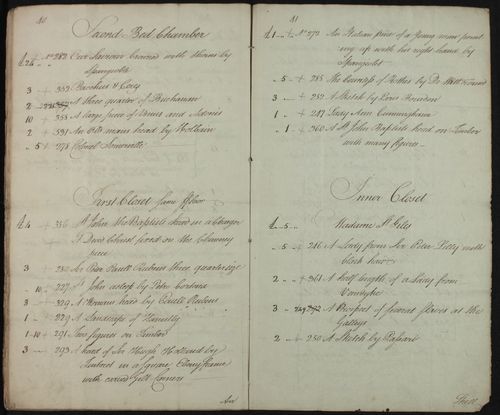 10
Second Bed Chamber
£24 - + No 282 Our Saviour Crowned with thorns by
Spagnolet
3 - + 353 Bacchus & Ceres
2 - A three quarter of Buchanan
10 + 358 A large piece of Venus and Adonis
2 + 591 An Old mans head by Holbein
- 5 + 278 Colonel Somerville
First Closet same floor
£4 + 356 St John the Baptists head in a Charger
St David Colonel joined on the Chimney
piece
3 + 230 Sir Peter Paul Rubens three quarter size
- 10 + 227 St John asleep by Peter Cortona
3 + 329 A Womans head by Paul Rubens
1 + 229 A Landscape of
1 - 10 + 291 Two figures on Timber
3 + 293 A head of Sir Hugh Holland by
in a Square Ebony frame
with carved Gilt Corners
An
11
£1 + No 272 An Italian piece of a Young man point
ing up with his right hand by
Spagnolet
- 5 + 285 The Countess of Rothes by De Witt
3 + 252 A Sketch by Bourdon
1 + 247 Lady Ann Cunninghame
1 + 360 A St John Baptists head on Timber
with many figures
Inner Closet
£ - 5 - Madame St Giles
- 5 + 246 A Lady from Sir Peter Lilly with
black hair
2 + 361 A half length of a Lady from
Vandyke
3 A Prospect of several Slaves at the
Galleys
2 + 250 A Sketch by
Three